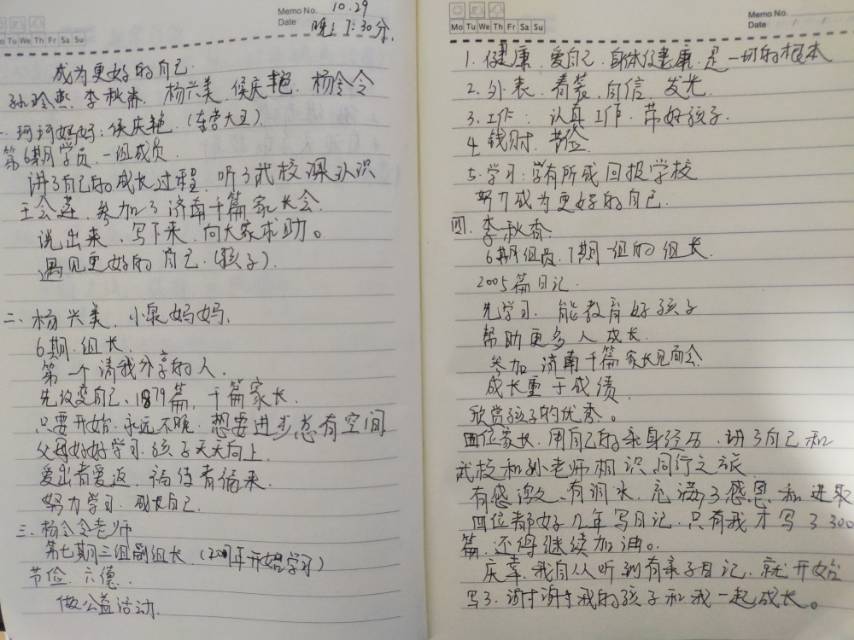 Memo No.
10.29
Date
晚上 7:30分.
Mo Tu We Th Fr Sa Su
成为更好的自己.
孙玲燕. 李秋香. 杨兴美. 侯庆艳. 杨令令
一. 珂珂妈妈: 侯庆艳.
第6期学员. 一组成员.
讲了自己的成长过程. 听了武校深认识
参加了济南千篇家长会.
说出来. 写下来. 向大家求助。
遇见更好的自己.(孩子).
二. 杨兴美. 小泉妈妈.
6期. 组长.
第一个请我分享的人.
先改变自己. 1879篇. 千篇家长.
只要开始. 永远不晚. 想要进步总有空间
父母好好学习. 孩子天天向上.
爱出者爱返. 福往者福来.
努力学习. 成长自己.
三. 杨令令老师
第七期三组副组长.
节俭. 六德.
做公益活动.
Memo No.
Date
Mo Tu We Th Fr Sa Su
1. 健康. 爱自己. 身体健康. 是一切的根本
2. 外表. 着装. 自信. 发光.
3. 工作: 认真工作. 带好孩子.
4. 钱财. 节俭.
5. 学习: 学有所成回报学校
努力成为更好的自己.
四. 李秋香.
6期组员. 7期一组的组长.
2005篇日记.
先学习. 能教育好孩子
帮助更多人成长.
参加济南千篇家长见面会.
成长重于成绩.
欣赏孩子的优秀。
四位家长. 用自己的亲身经历. 讲了自己和
武校和孙老师相识同行之旅.
有感激. 有泪水. 充满了感恩和进取
四位都好几年写日记. 只有我才写了300
篇. 还得继续加油。
庆幸. 我自从听到有亲子日记. 就开始
写了. 谢谢我的孩子和我一起成长。